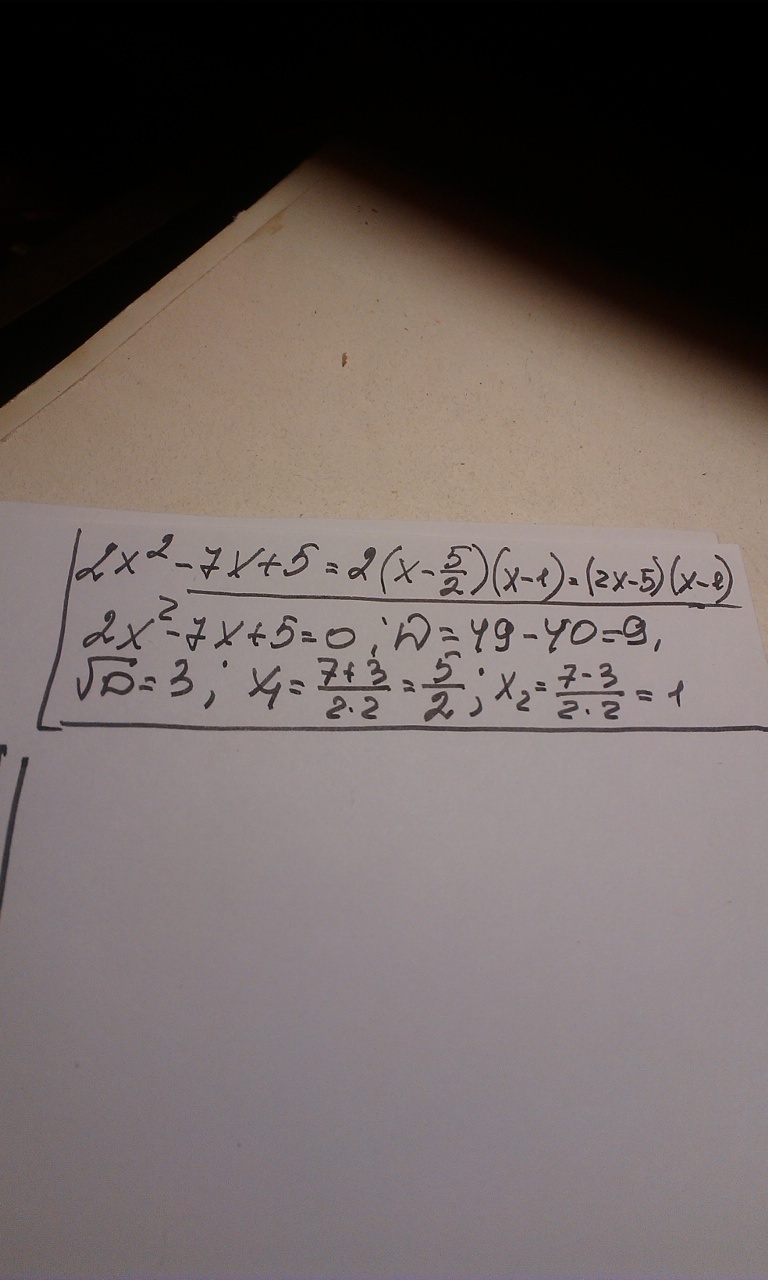 2x² - 7x + 5 = 2(x - 5/2)(x - 1) = (2x - 5)(x - 1)
2x² - 7x + 5 = 0; D = 49 - 40 = 9,
√D = 3; x₁ = (7+3)/(2·2) = 5/2; x₂ = (7-3)/(2·2) = 1